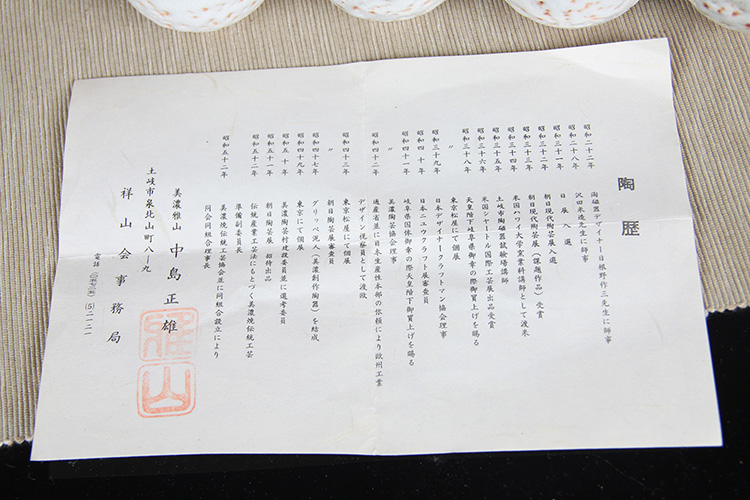 陶歴
昭和二十二年 陶磁器デザイナー日根野作三先生に師事
昭和二十八年 沢田米造先生に師事
昭和三十一年 日展入選
昭和三十二年 朝日現代陶芸展入選
昭和三十三年 朝日現代陶芸展(課題作品)受賞
昭和三十四年 米国ハワイ大学窯業科講師として渡米
昭和三十五年 土岐市陶磁器試験場講師
昭和三十六年 米国シヤートル国際工芸展出品受賞
昭和三十八年 天皇陛下岐阜県御幸の際御買上げを賜る
〃 東京松屋にて個展
昭和三十九年 日本デザイナークラフトマン協会理事
昭和四十年 日本ニユウクラフト展審査員
昭和四十一年 岐阜県国体御幸の際天皇陛下御買上げを賜る
〃 美濃陶芸協会理事
昭和四十二年 通産省並に日本生産性本部の依頼により欧州工業
デザイン視察員として渡欧
昭和四十三年 東京松屋にて個展
〃 朝日陶芸展審査員
昭和四十七年 グリッペ泥人(美濃創作陶器)を結成
昭和四十九年 東京にて個展
昭和五十年 美濃陶芸村建設委員並に選考委員
昭和五十一年 朝日陶芸展 招待出品
昭和五十二年 伝統産業工芸法にもとづく美濃焼伝統工芸
準備副委員長
昭和五十二年 美濃焼伝統工芸協会並に同組合設立により
同会同組合理事長
美濃雅山 中島正雄
雅山
土岐市泉北山町八ー九
祥山会事務局